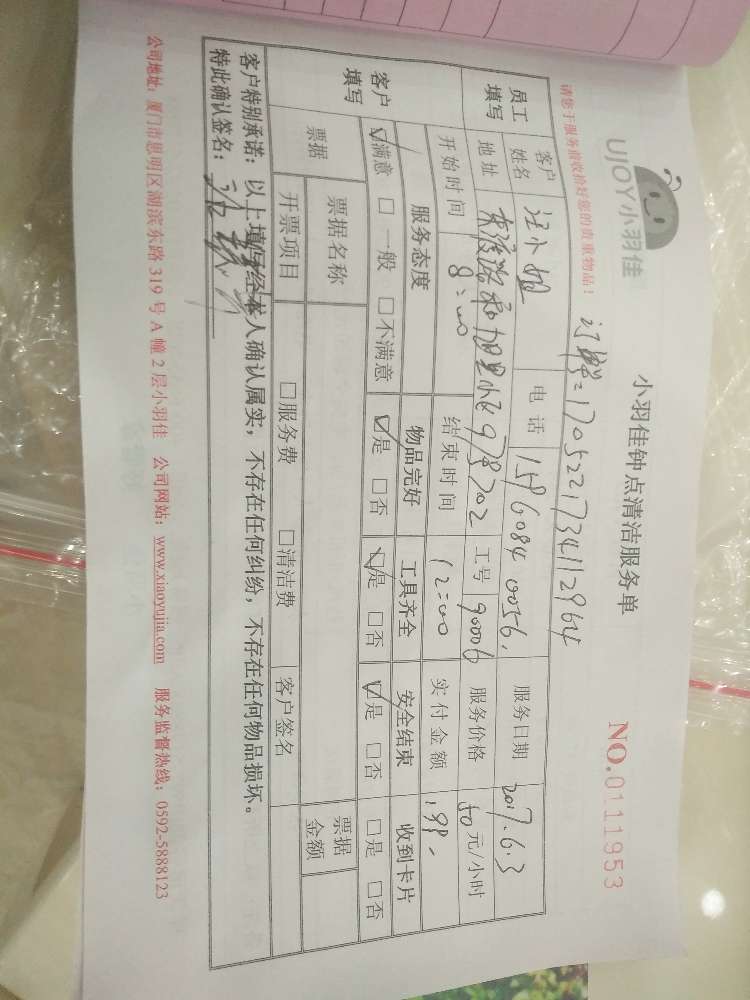 UJOY小羽佳
小羽佳钟点清洁服务单
NO.0111953
请您于服务前收拾好您的贵重物品！
订单号：17052217341129614
员工填写 客户姓名 汪小姐 电话 15960840056. 服务日期 2017.6.3
地址 9号702 工号 90006 服务价格 50元/小时
开始时间 8:00 结束时间 12:00 实付金额 199.
客户填写 服务态度 物品完好 工具齐全 安全结束 收到卡片
☑满意 □一般 □不满意 ☑是 □否 ☑是 □否 ☑是 □否 □是 □否
票据 票据名称 票据金额
开票项目 □服务费 □清洁费 客户签名
客户特别承诺：以上填写经本人确认属实，不存在任何纠纷，不存在任何物品损坏。
特此确认签名：
公司地址：厦门市思明区湖滨东路 319 号 A 幢 2 层小羽佳 公司网站：www.xiaoyujia.com 服务监督热线：0592-5888123